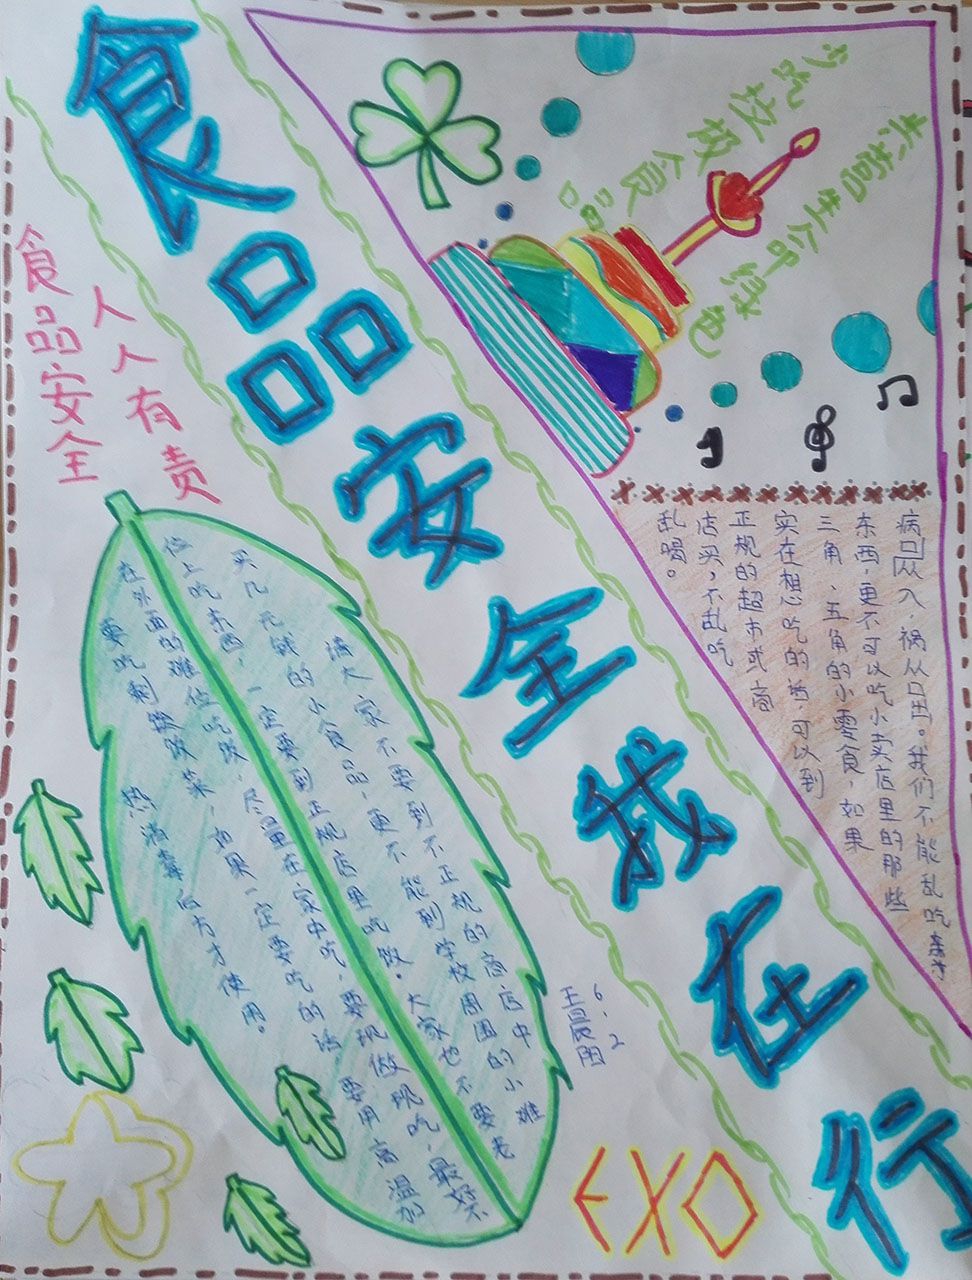 食品安全我在行
食品安全
人人有责
少吃垃极食品
生命
病口从入，祸从口出。我们不能乱吃
东西，更不可以吃小卖店里的那些
三角、五角的小零食，如果
实在想吃的话，可以到
正规的超市或商
店买，不乱吃
乱喝。
请大家不要到不正规的商店中
买几元钱的小食品，更不能到学校周围的小摊
位上吃东西，一定要到正规店里吃饭。大家也不要老
在外面的摊位吃饭，尽量在家中吃，要现做现吃，最好不
要吃剩饭饭菜，如果一定要吃的话，要用高温加
热消毒后方才使用。
6.2
王晨阳
EXO